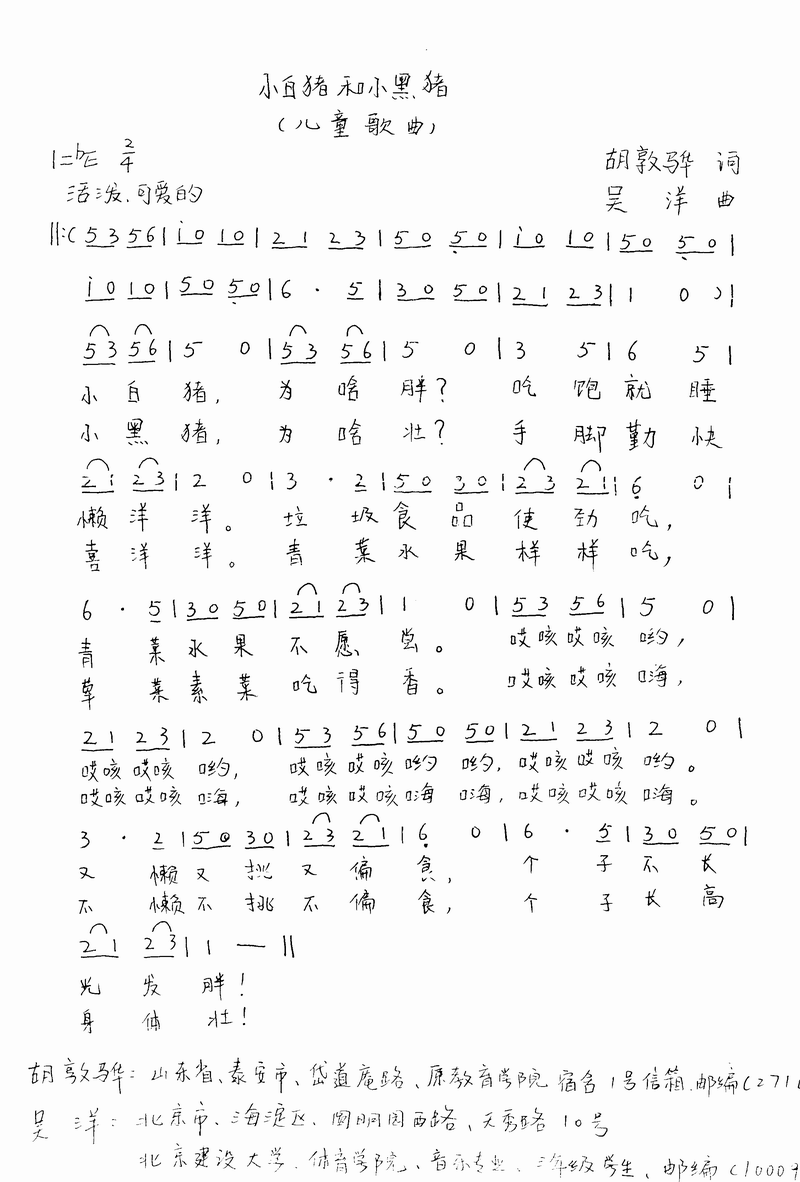 小白猪和小黑猪
(儿童歌曲)
1=bE 2/4
胡敦骅 词
活泼、可爱的
吴 洋 曲
||:( 5 3 5 6 | i 0 1 0 | 2 1 2 3 | 5 0 5 0 | i 0 1 0 | 5 0 5 0 |
i 0 1 0 | 5 0 5 0 | 6 · 5 | 3 0 5 0 | 2 1 2 3 | 1 0 ) |
5 3 5 6 | 5 0 | 5 3 5 6 | 5 0 | 3 5 | 6 5 |
小 白 猪, 为 啥 胖? 吃 饱 就 睡
小 黑 猪, 为 啥 壮? 手 脚 勤 快
2 1 2 3 | 2 0 | 3 · 2 | 5 0 3 0 | 2 3 2 1 | 6 0 |
懒 洋 洋。 垃 圾 食 品 使 劲 吃,
喜 洋 洋。 青 菜 水 果 样 样 吃,
6 · 5 | 3 0 5 0 | 2 1 2 3 | 1 0 | 5 3 5 6 | 5 0 |
青 菜 水 果 不 愿 尝。 哎咳哎咳 哟,
荤 菜 素 菜 吃 得 香。 哎咳哎咳 嗨,
2 1 2 3 | 2 0 | 5 3 5 6 | 5 0 5 0 | 2 1 2 3 | 2 0 |
哎咳哎咳 哟, 哎咳哎咳哟 哟, 哎咳哎咳 哟。
哎咳哎咳 嗨, 哎咳哎咳嗨 嗨, 哎咳哎咳 嗨。
3 · 2 | 5 0 3 0 | 2 3 2 1 | 6 0 | 6 · 5 | 3 0 5 0 |
又 懒 又 挑 又 偏 食, 个 子 不 长
不 懒 不 挑 不 偏 食, 个 子 长 高
2 1 2 3 | 1 — ||
光 发 胖!
身 体 壮!
胡敦骅: 山东省、泰安市、岱道庵路、原教育学院 宿舍1号信箱.邮编(271
吴 洋: 北京市、海淀区、圆明园西路、天秀路10号
北京建设大学、体育学院、音乐专业、三年级学生、邮编(10009